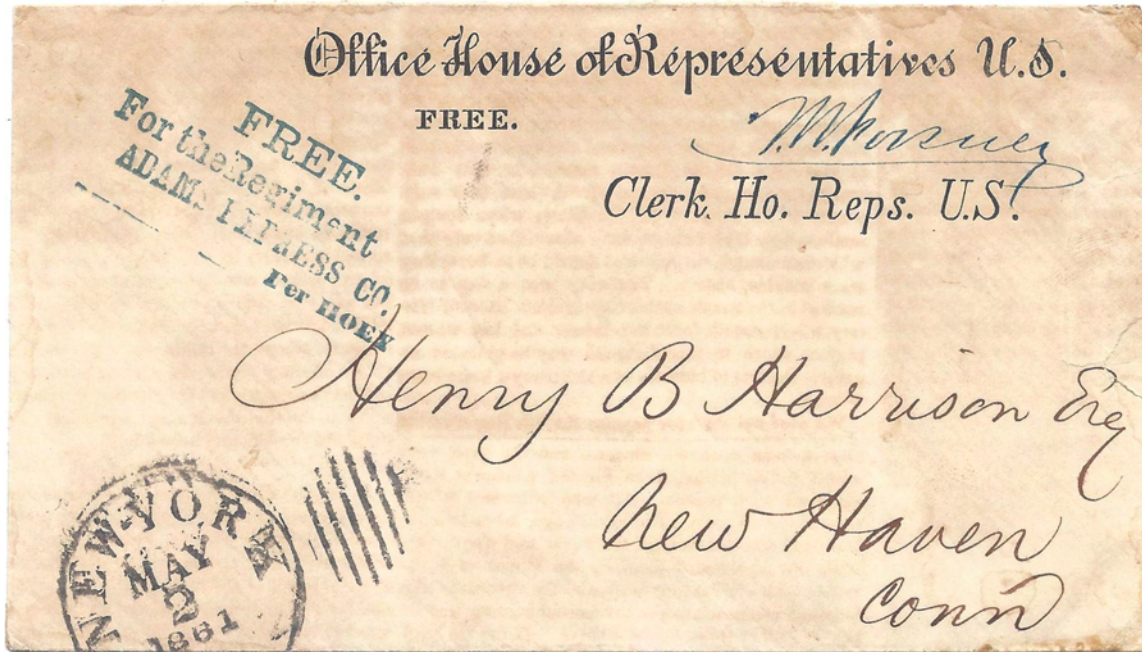 Office House of Representatives U.S.
FREE.
Clerk. Ho. Reps. U.S.
FREE.
For the Regiment
ADAMS EXPRESS CO.
Per HOEY
Henry B Harrison Esq
New Haven
Conn
NEW-YORK
MAY
2
1861